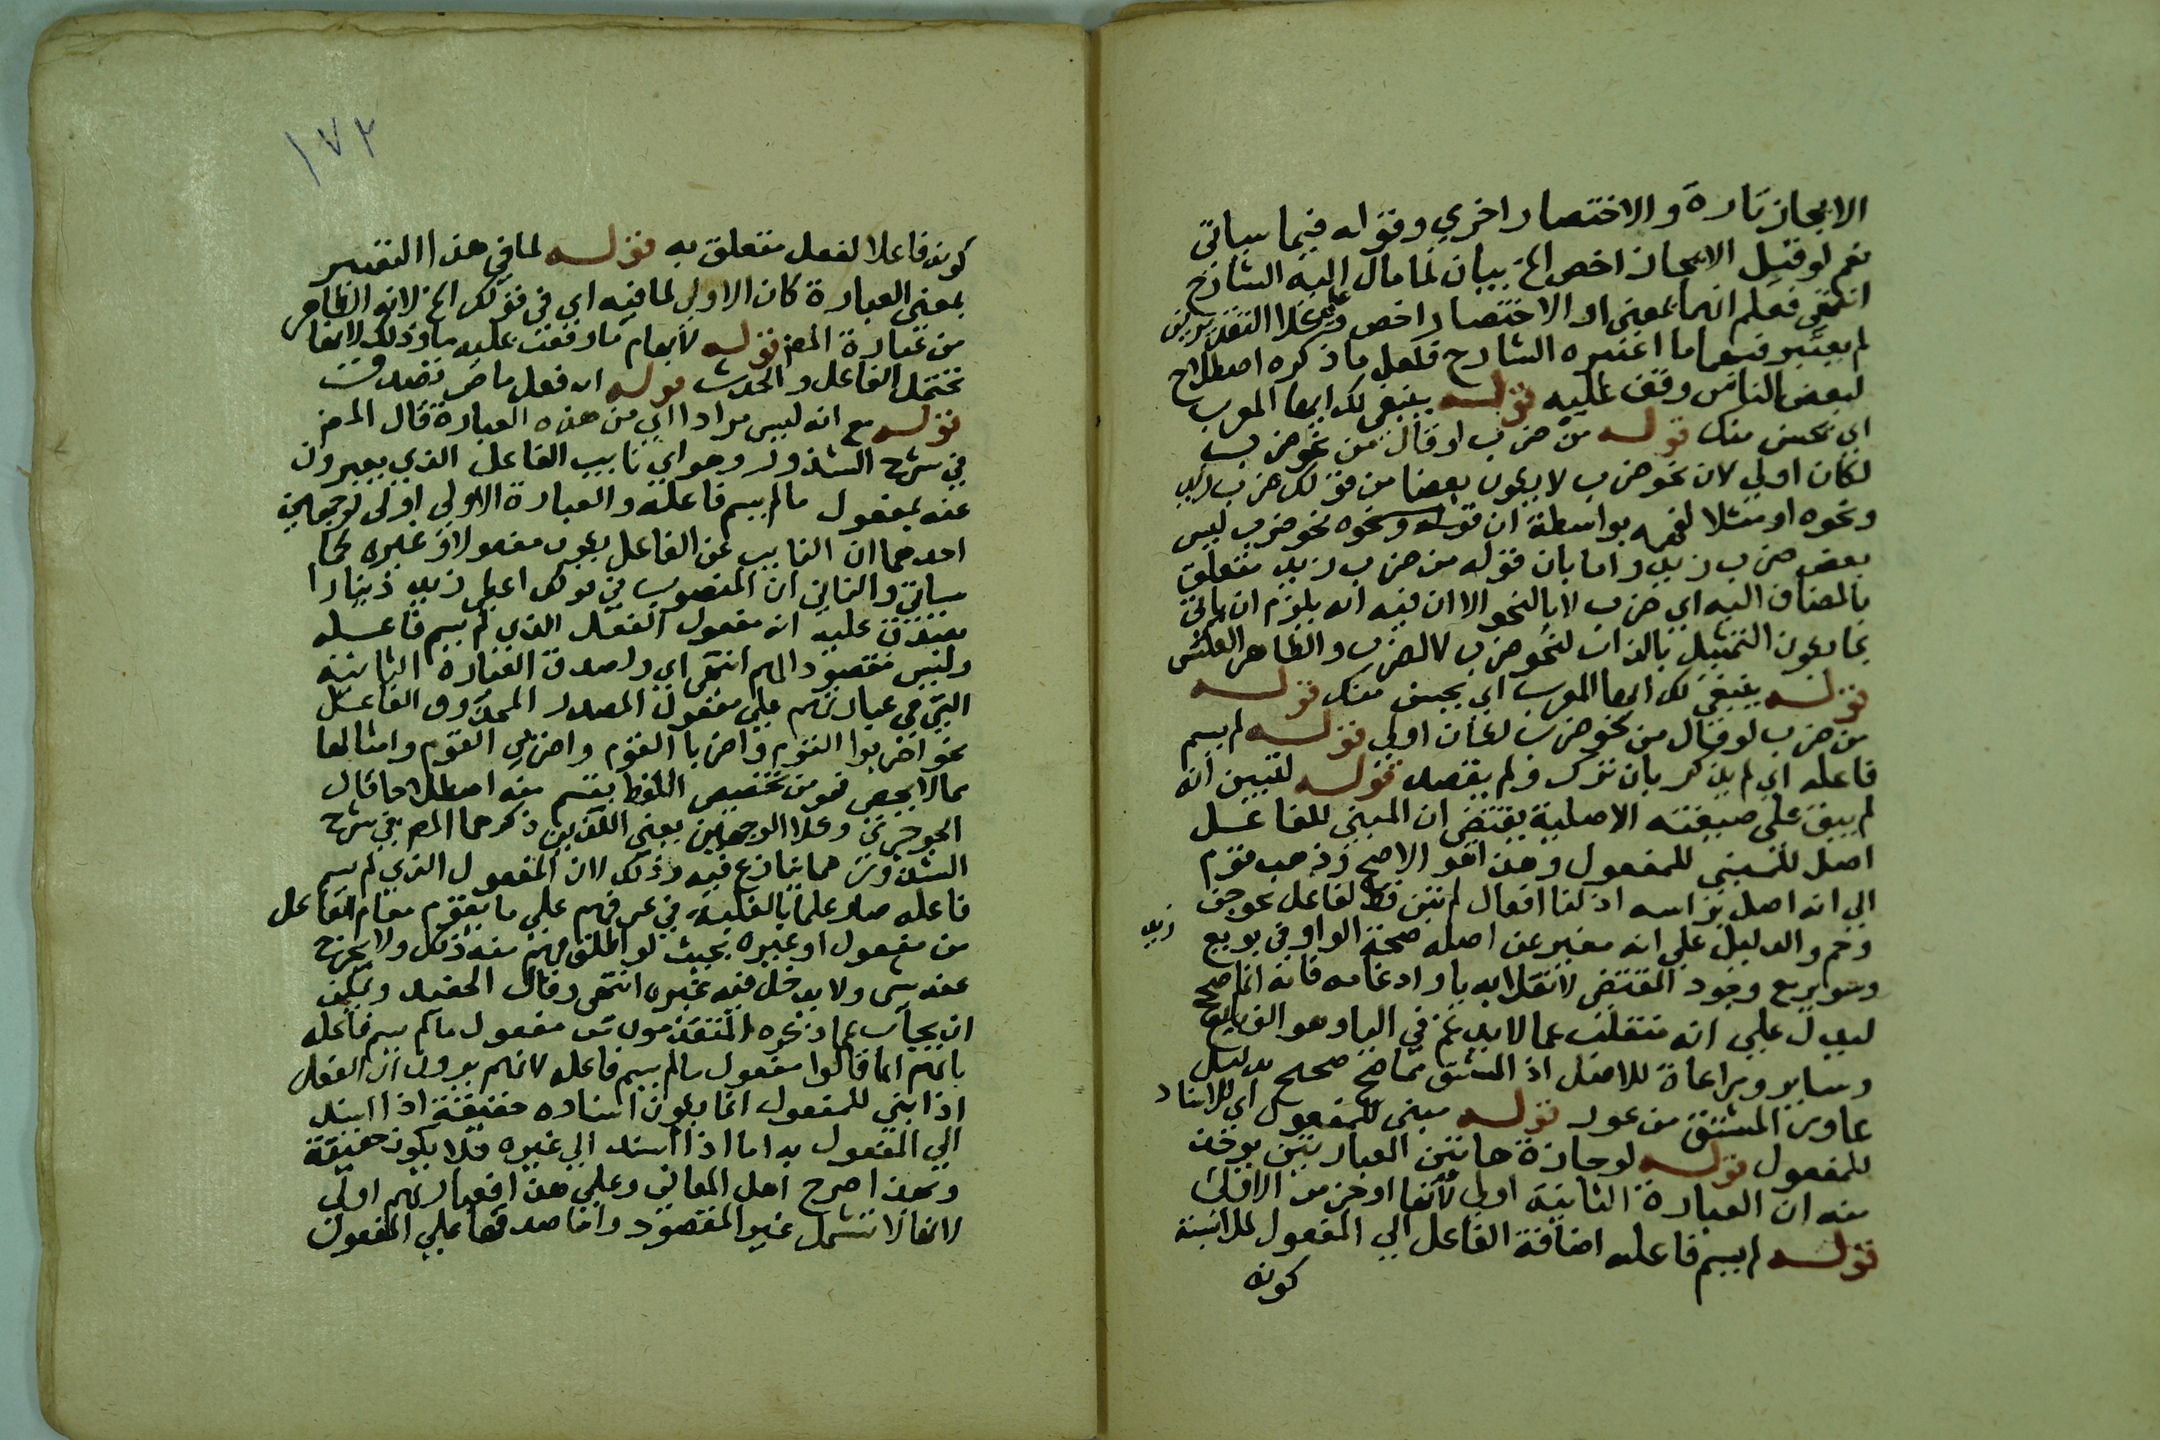 الايجاز تارة والاختصار اخري وقوله فيما سياتي
نعم لو قيل الايجاز اخص الخ بيان لما مال اليه الشارح
انتهي فعلم انهما بمعني او الاختصار اخص وعلي هذا التقدير
لم يعتبر فيهما ما اعتبره الشارح فلعل ما ذكره اصطلاح
لبعض الناس وقف عليه قوله ينبغي لك ايها المعرب
اي يحسن منك قوله من ضرب لو قال من نحو ضرب
لكان اولي لان نحو ضرب لا يكون بعضا من قولك ضرب زيد
ونحوه او مثلا لفهمه بواسطة ان قوله ونحوه نحو ضرب ليس
بعض ضرب زيد واما بان قوله من ضرب زيد متعلق
بالمضاف اليه اي ضرب لا بالنحو الا ان فيه انه يلزم ان ياتي
بما يكون التمثيل بالذات لنحو ضرب لا لضرب والظاهر العكس
قوله ينبغي لك ايها المعرب اي يحسن منك قوله
من ضرب لو قال من نحو ضرب لكان اولي قوله لم يسم
فاعله اي لم يذكر بان ترك ولم يقصد قوله لتبيين انه
لم يبق علي صيغته الاصلية يقتضي ان المبني للفاعل
اصل للمبني للمفعول وهذا هو الاصح وذهب قوم
الي انه اصل براسه اذ لنا افعال لم تبن قط لفاعل نحو جن زيد
وحم والدليل علي انه مغير عن اصله صحة الواو في بويع
وسوير مع وجود المقتضي لانقلابه يا وادغامه فانه انما صح
ليدل علي انه منقلب عما لا يدغم في اليا وهو الف بايع
وساير ومراعاة للاصل اذ المشتق مما صح صحيح بدليل
عاور المشتق من عور قوله مبني للمفعول اي للاسناد
للمفعول قوله لوجازة هاتين العبارتين يوخذ
منه ان العبارة الثانية اولي لانها اوجز من الاولي
قوله لم يسم فاعله اضافة الفاعل الي المفعول لملابسة
كونه
١٧٢
كونه فاعلا لفعل متعلق به قوله لما في هذا التفسير
بمعني العبارة كان الاولي لما فيه اي في قولك الخ لانه الظاهر
من عبارة المص قوله لابهام ما وقعت عليه ما وذلك لانها
تحتمل الفاعل والحدث قوله ان فعل ماض
قوله مع انه ليس مرادا اي من هذه العبارة قال المص
في شرح الشذور وهو اي نايب الفاعل الذي يعبرون
عنه بمفعول ما لم يسم فاعله والعبارة الاولي اولي لوجهين
احدهما ان النايب عن الفاعل يكون مفعولا وغيره كما
سياتي والثاني ان المنصوب في قولك اعطي زيد دينارا
يصدق عليه انه مفعول الفعل الذي لم يسم فاعله
وليس مقصودا لهم انتهي اي ولصدق العبارة الثانية
التي هي عبارتهم علي مفعول المصدر المحذوف الفاعل
نحو اضربوا القوم واضربا القوم واضربي القوم وامثالها
مما لا يحصي فهو من تخصيص اللفظ بقسم منه اصطلاحا قال
الجوجري وكلا الوجهين يعني اللذين ذكرهما المص في شرح
الشذور مما ينازع فيه وذلك لان المفعول الذي لم يسم
فاعله صار علما بالغلبة في عرفهم علي ما يقوم مقام الفاعل
من مفعول او غيره بحيث لو اطلق فهم منه ذلك ولا يخرج
عنه شي ولا يدخل فيه غيره انتهي وقال الحفيد ويمكن
ان يجاب عما ذكره المتقدمون من مفعول ما لم يسم فاعله
بانهم انما قالوا مفعول ما لم يسم فاعله لانهم يرون ان الفعل
اذا بني للمفعول انما يكون اسناده حقيقة اذا اسند
الي المفعول به اما اذا اسند الي غيره فلا يكون حقيقة
وبهذا صرح اهل المعاني وعلي هذا فعبارتهم اولي
لانها لا تشمل غير المقصود واما صدقها علي المفعول